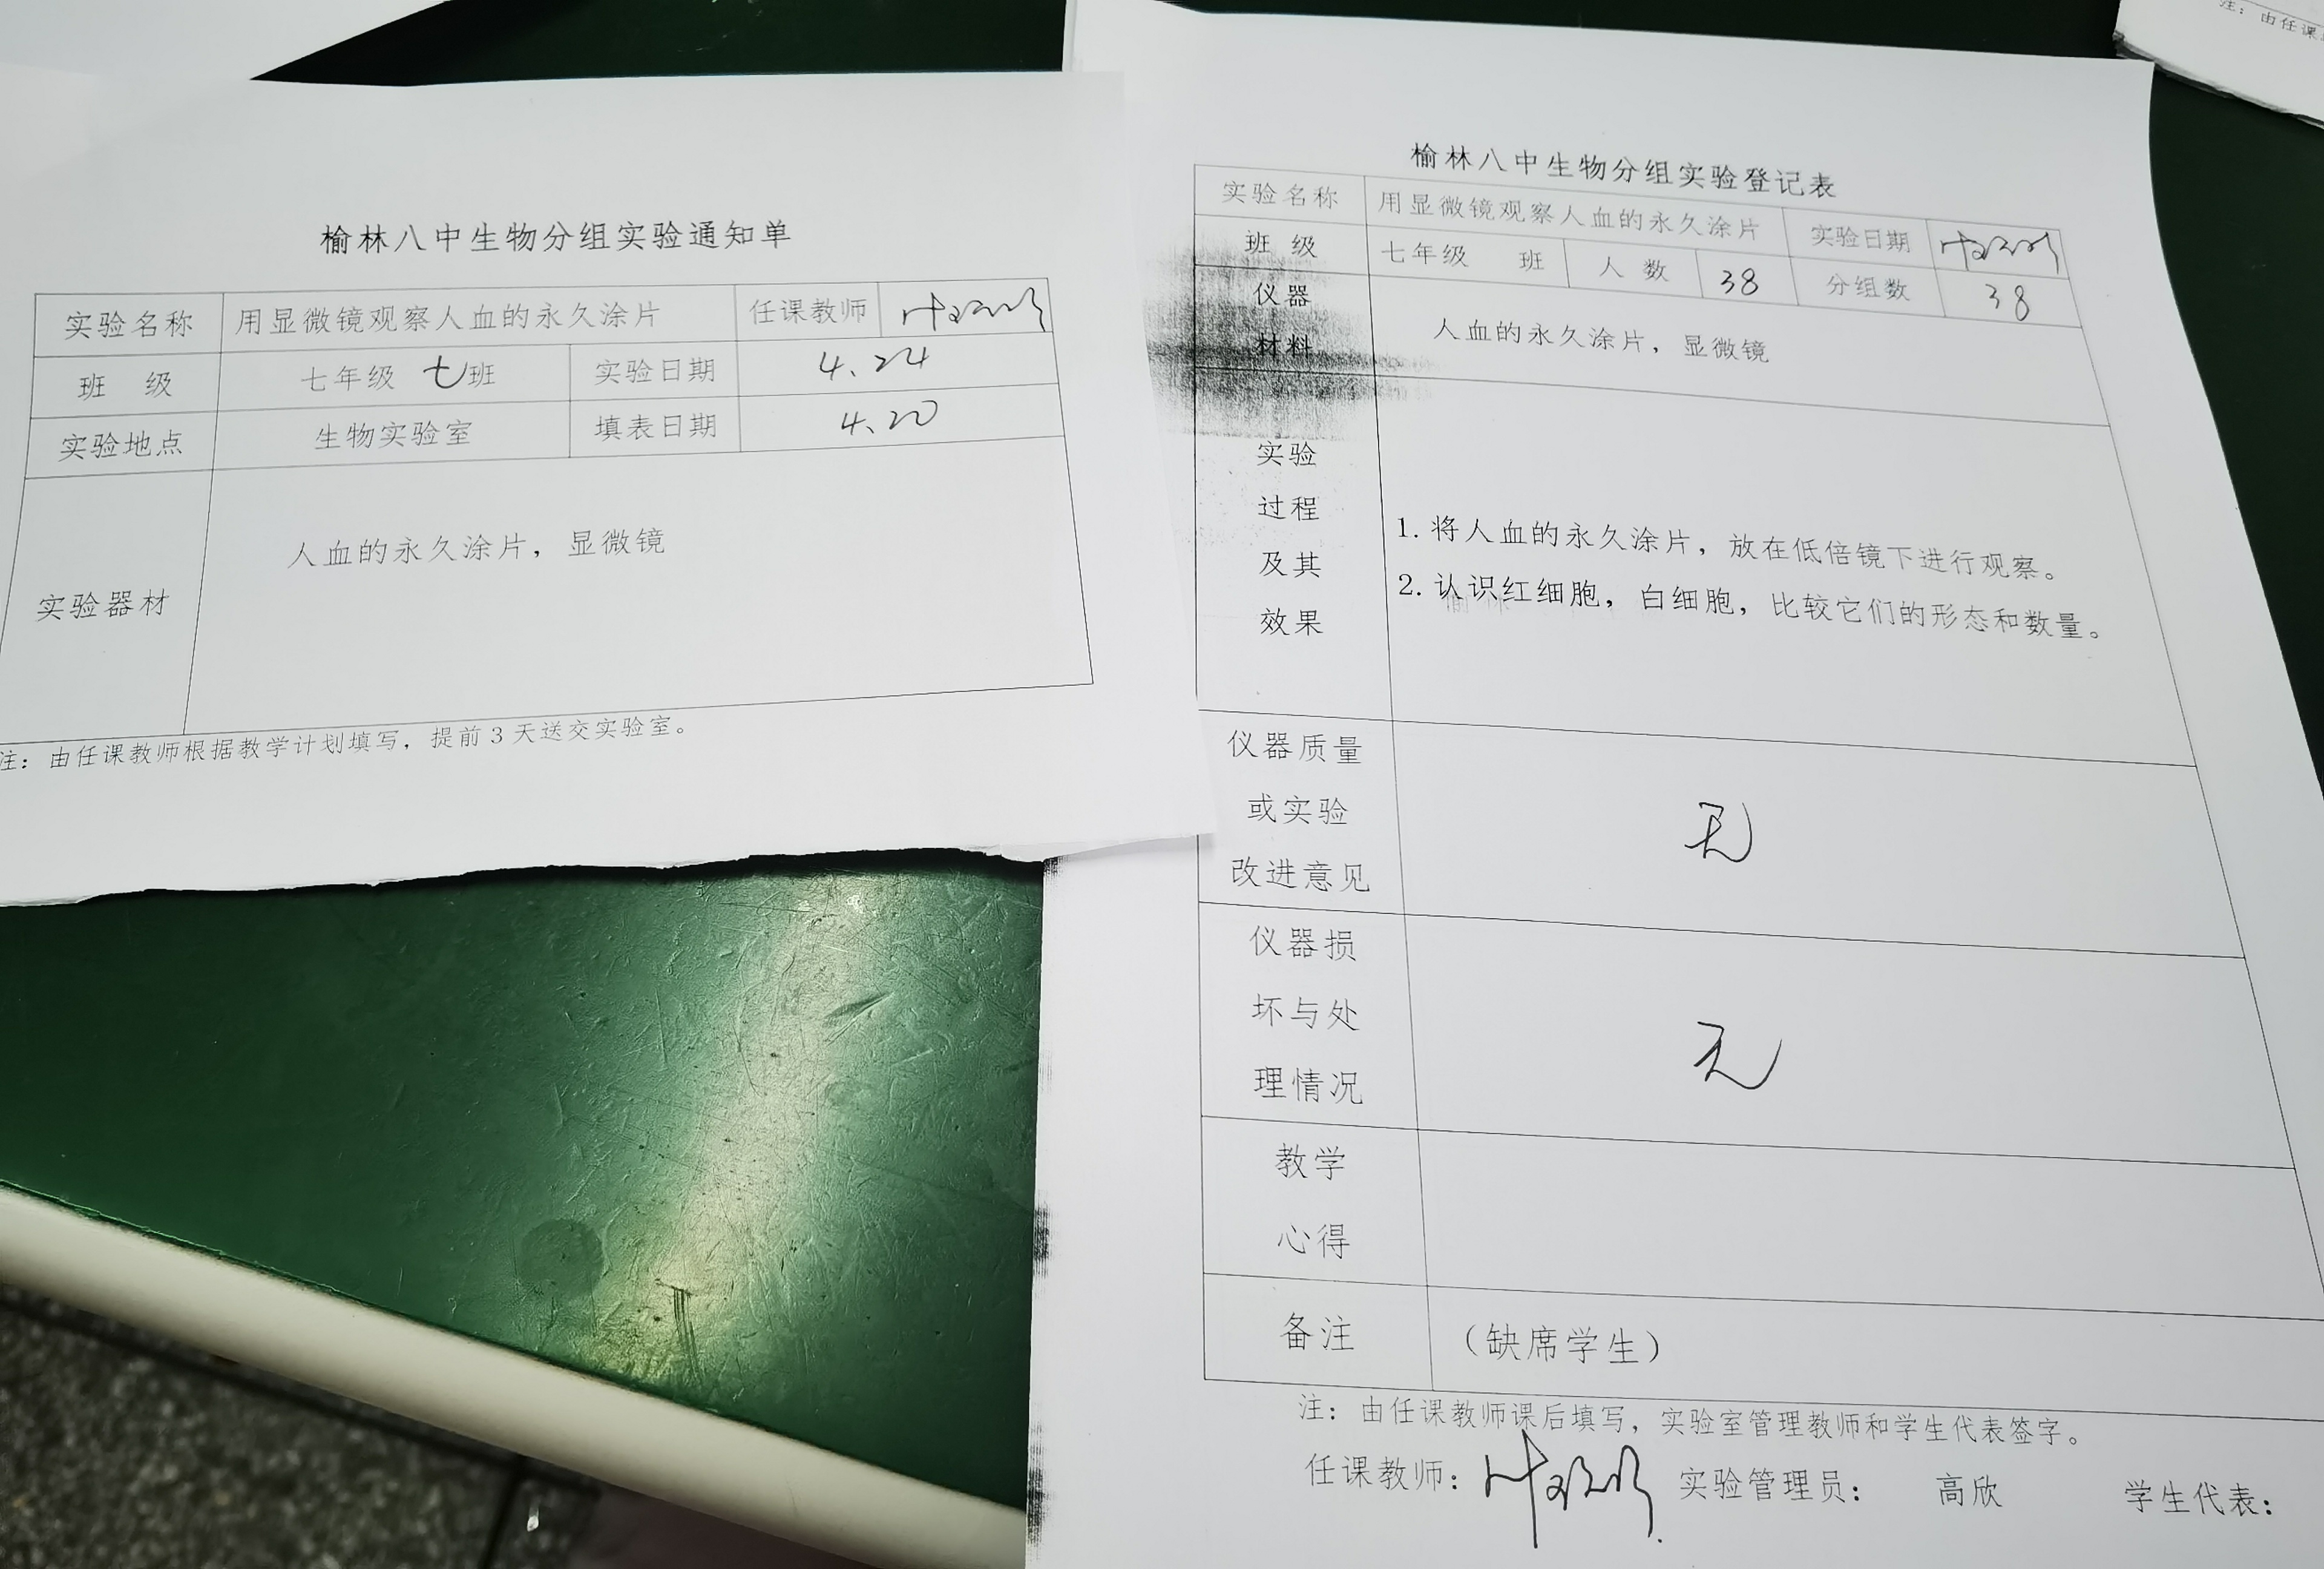 榆林八中生物分组实验通知单
实验名称 用显微镜观察人血的永久涂片 任课教师
班 级 七年级 七班 实验日期 4.24
实验地点 生物实验室 填表日期 4.20
实验器材 人血的永久涂片，显微镜
注：由任课教师根据教学计划填写，提前3天送交实验室。
榆林八中生物分组实验登记表
实验名称 用显微镜观察人血的永久涂片 实验日期
班 级 七年级 班 人 数 38 分组数 38
仪器
材料
人血的永久涂片，显微镜
实验
过程
及其
效果
1. 将人血的永久涂片，放在低倍镜下进行观察。
2. 认识红细胞，白细胞，比较它们的形态和数量。
仪器质量
或实验
改进意见
无
仪器损
坏与处
理情况
无
教学
心得
备注 （缺席学生）
注：由任课教师课后填写，实验室管理教师和学生代表签字。
任课教师： 实验管理员： 高欣 学生代表：
注：由任课